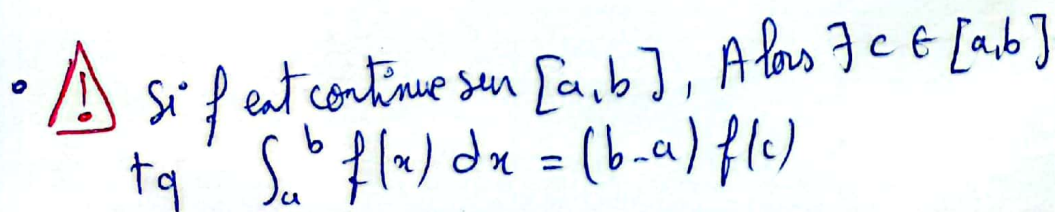 • ⚠ Si f est continue sur [a,b], Alors ∃ c ∈ [a,b]
tq ∫_a^b f(x) dx = (b-a) f(c)